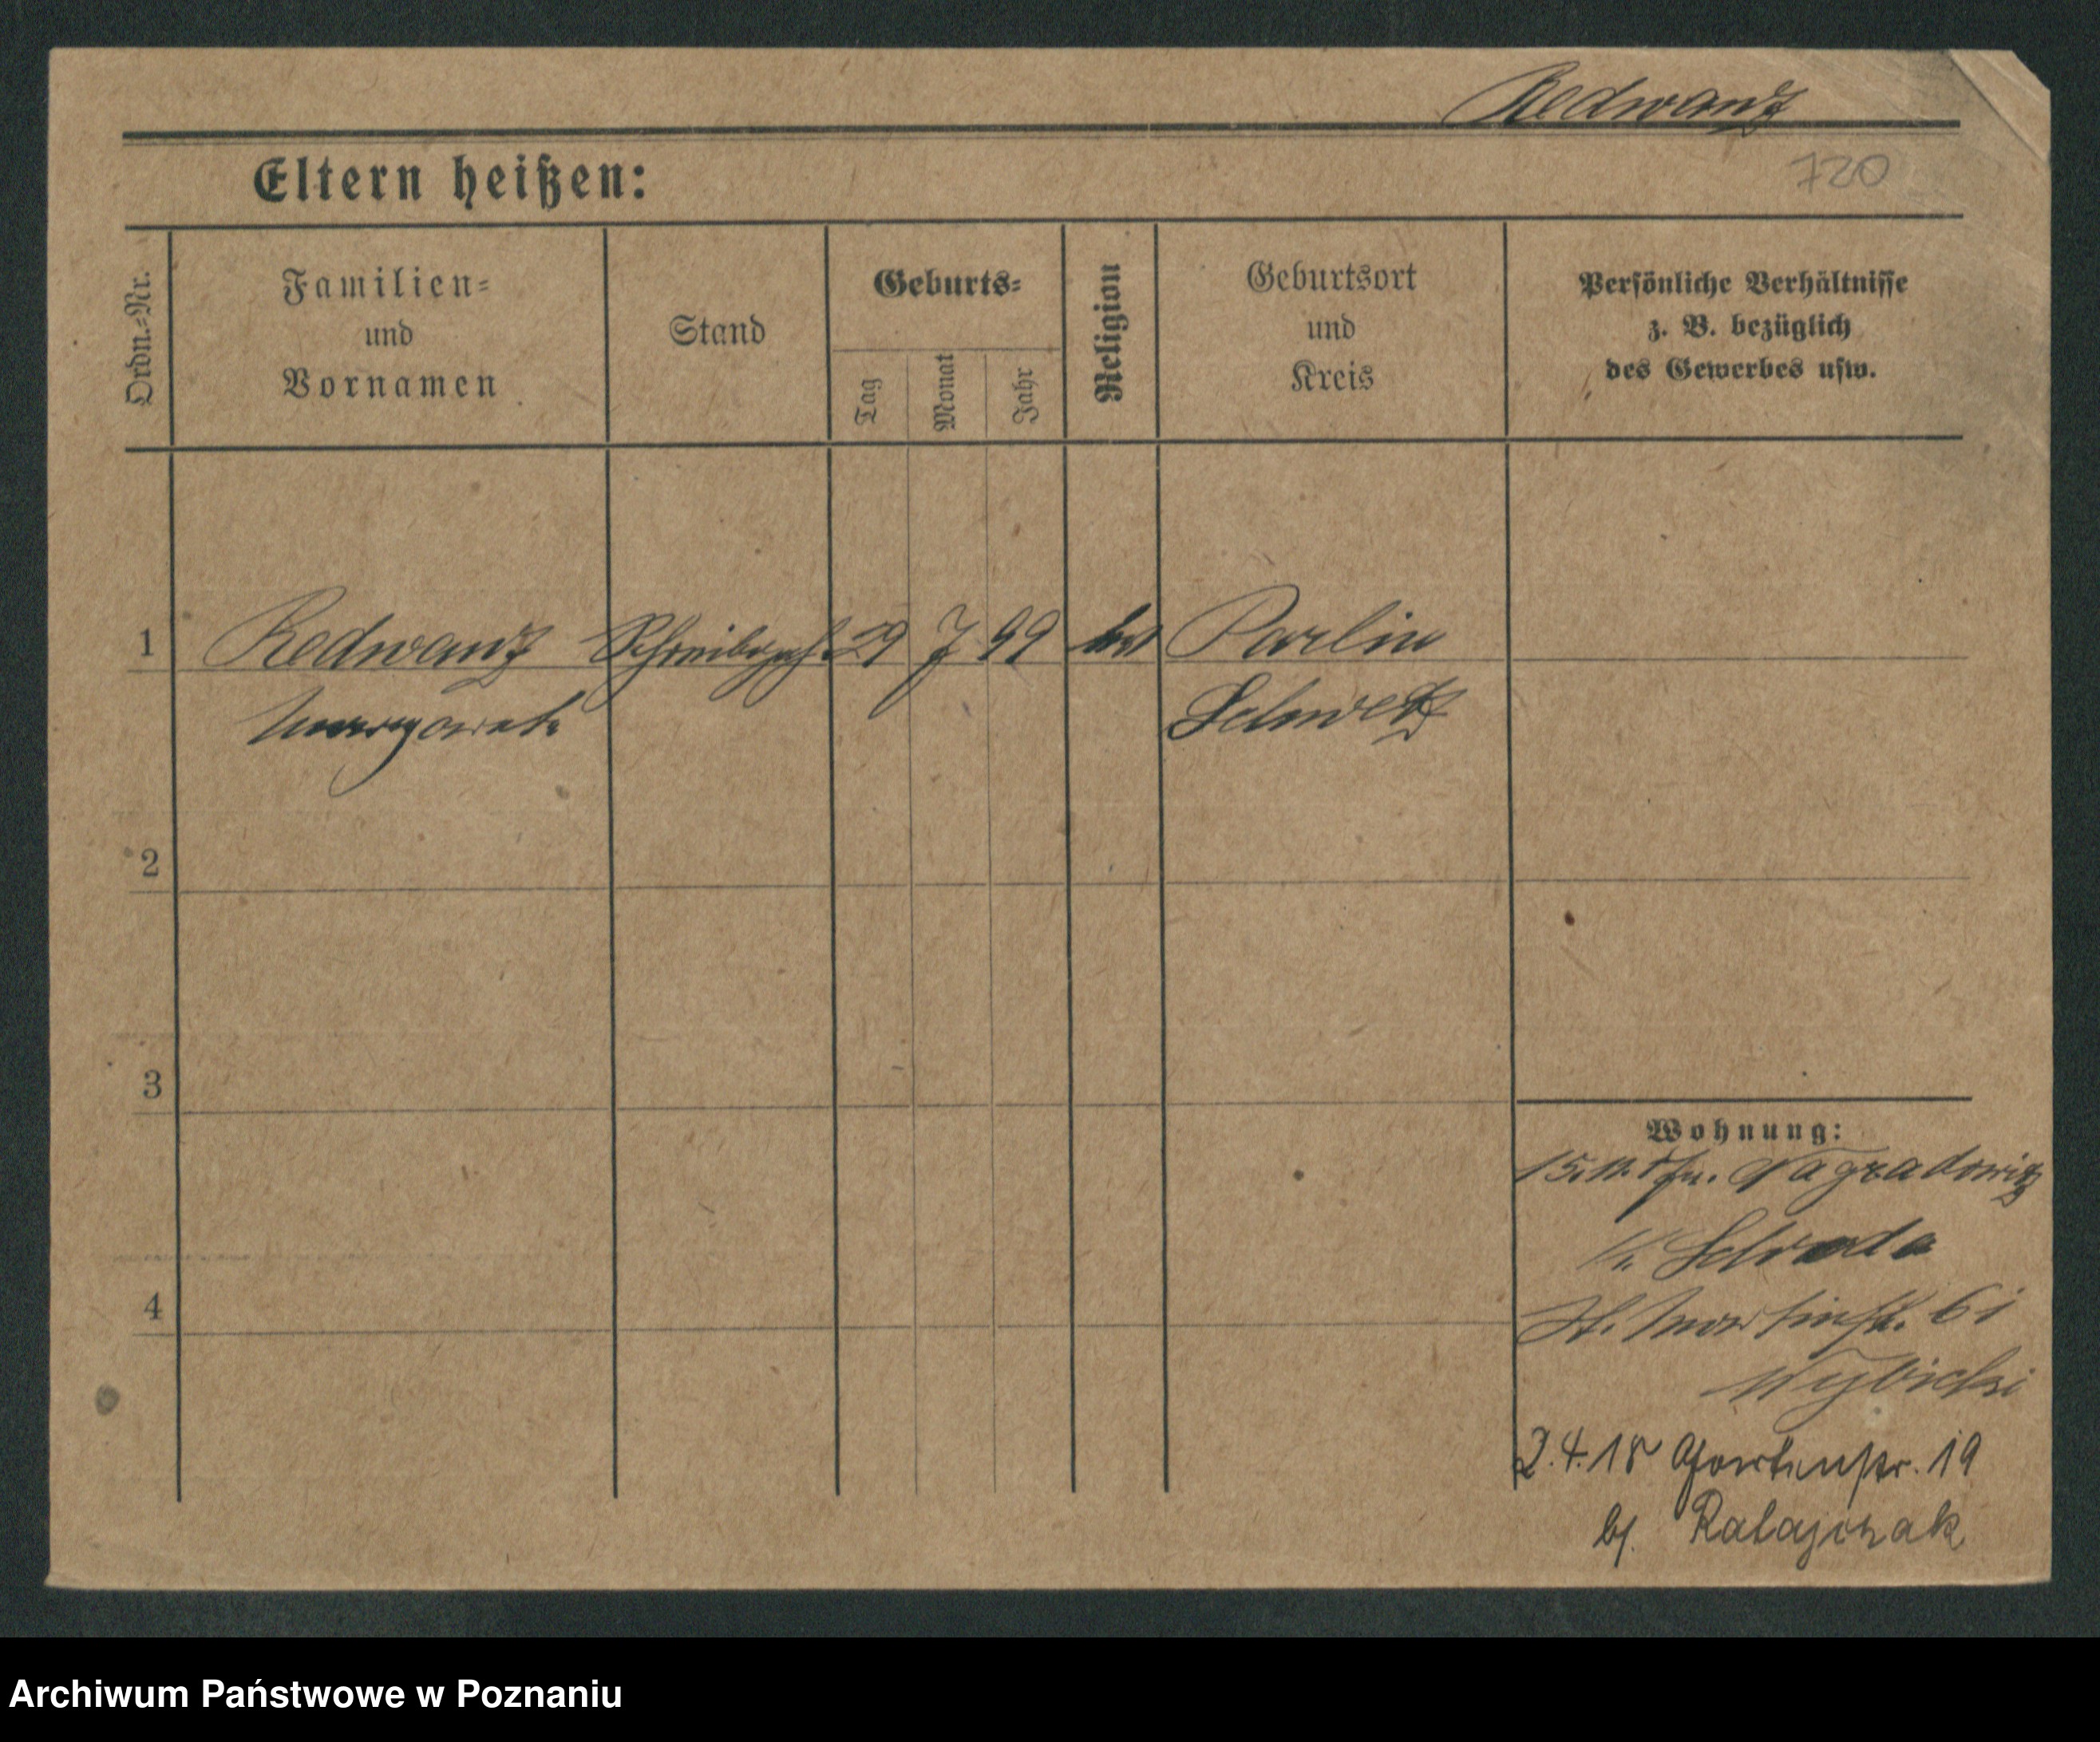 Redwanz
720
Eltern heißen:
Ordn.-Nr.
Familien-
und
Vornamen
Stand
Geburts-
Tag
Monat
Jahr
Religion
Geburtsort
und
Kreis
Persönliche Verhältnisse
z. B. bezüglich
des Gewerbes usw.
1 Redwanz 29 7 99 Parlin
Schwetz
2
3
Wohnung:
Nagradowitz
Schroda
4
St. Martinstr.
Wybicki
2.4.18 Gartenstr. 19
b/. Ratajczak
Archiwum Państwowe w Poznaniu